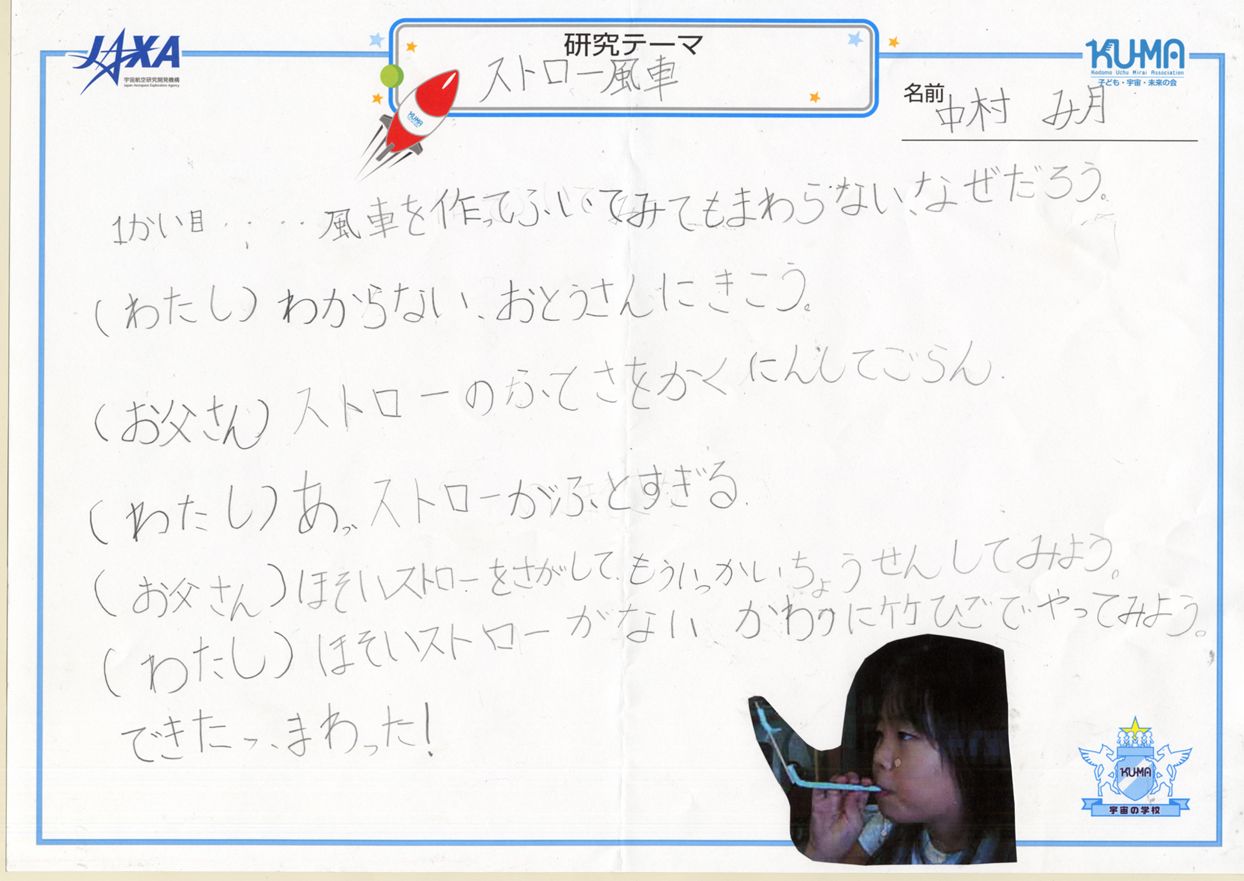 JAXA
宇宙航空研究開発機構
Japan Aerospace Exploration Agency
研究テーマ
ストロー風車
KUMA
KU-MA
Kodomo Uchu Mirai Association
子ども・宇宙・未来の会
名前 中村 み月
1かい目・・・・風車を作ってふいてみてもまわらない、なぜだろう。
(わたし)わからない、おとうさんにきこう。
(お父さん)ストローのふてさをかくにんしてごらん.
(わたし)あっ、ストローがふとすぎる.
(お父さん)ほそいストローをさがして、もういっかいちょうせんしてみよう。
(わたし)ほそいストローがない、かわりに竹ひごでやってみよう。
できたっ、まわった!
KU-MA
宇宙の学校